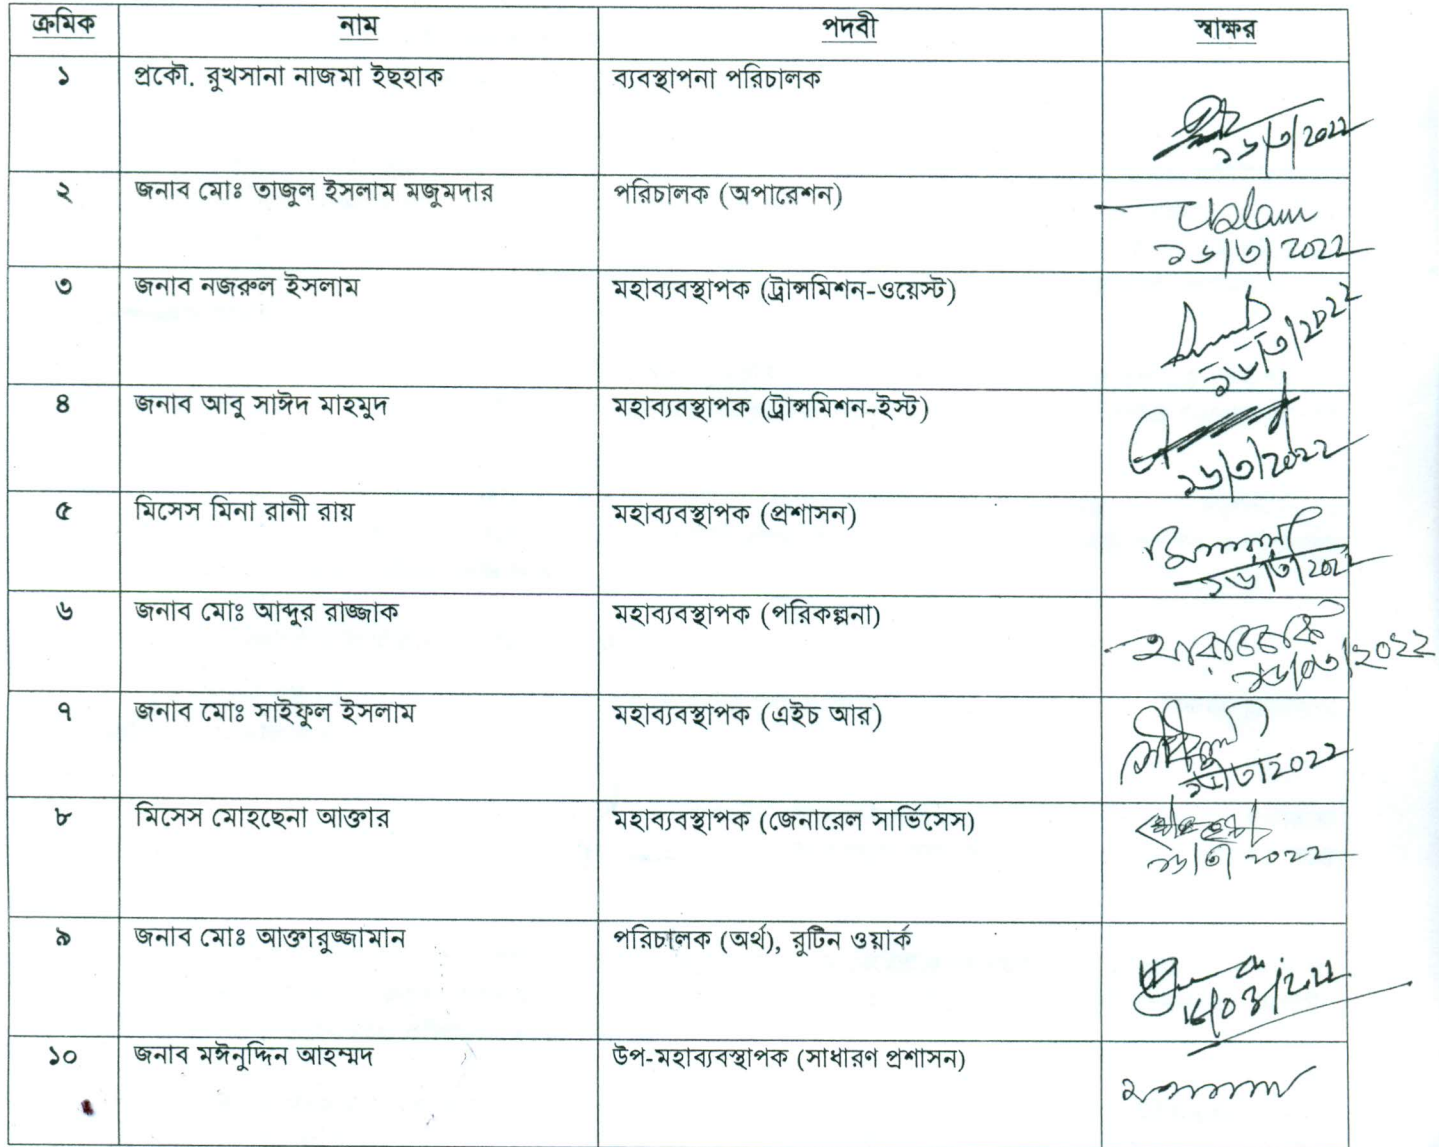 ক্রমিক নাম পদবী স্বাক্ষর
১ প্রকৌ. রুখসানা নাজমা ইছহাক ব্যবস্থাপনা পরিচালক
১৬/৩/2022
২ জনাব মোঃ তাজুল ইসলাম মজুমদার পরিচালক (অপারেশন)
১৬/৩/2022
৩ জনাব নজরুল ইসলাম মহাব্যবস্থাপক (ট্রান্সমিশন-ওয়েস্ট)
১৬/৩/২০22
৪ জনাব আবু সাঈদ মাহমুদ মহাব্যবস্থাপক (ট্রান্সমিশন-ইস্ট)
১৬/৩/2022
৫ মিসেস মিনা রানী রায় মহাব্যবস্থাপক (প্রশাসন)
১৬/৩/2022
৬ জনাব মোঃ আব্দুর রাজ্জাক মহাব্যবস্থাপক (পরিকল্পনা)
১৬/০৩/২০২২
৭ জনাব মোঃ সাইফুল ইসলাম মহাব্যবস্থাপক (এইচ আর)
১৬/৩/2022
৮ মিসেস মোহছেনা আক্তার মহাব্যবস্থাপক (জেনারেল সার্ভিসেস)
১৬/৩/2022
৯ জনাব মোঃ আক্তারুজ্জামান পরিচালক (অর্থ), রুটিন ওয়ার্ক
16/03/2022
১০ জনাব মঈনুদ্দিন আহম্মদ উপ-মহাব্যবস্থাপক (সাধারণ প্রশাসন)